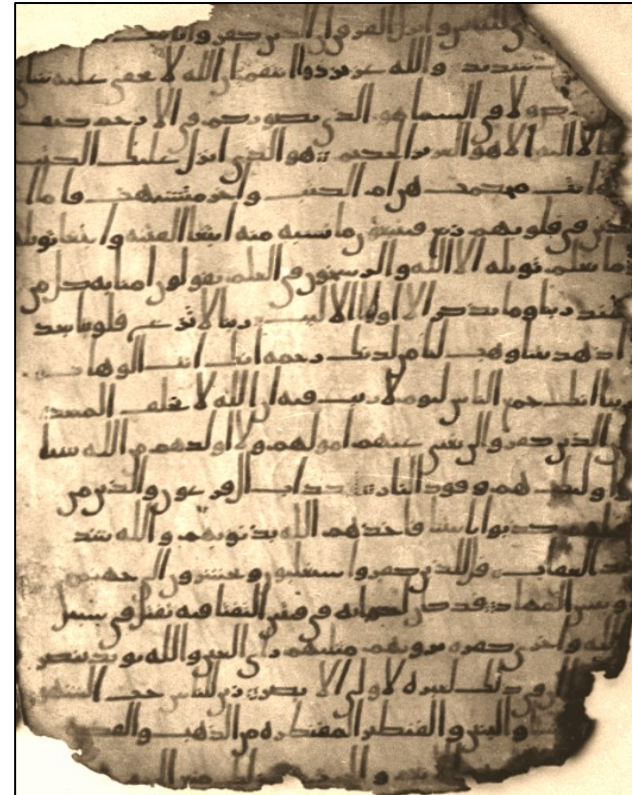 للناس وانزل الفرقن ان الذين كفروا بايت
شديد والله عزيز ذو انتقم ان الله لا يخفى عليه شاي
ولا في السما هو الذي يصوركم في الارحم كيف
لا اله الا هو العزيز الحكيم هو الذي انزل عليك الكتب
ايت محكمت هن ام الكتب واخر متشبهت فاما ا
لذين في قلوبهم زيغ فيتبعون ما تشبه منه ابتغا الفتنه وابتغا تويله
وما يعلم تويله الا الله والرسخون في العلم يقولون امنا به كل من
عند ربنا وما يذكر الا اولوا الالبب ربنا لا تزغ قلوبنا بعد
اذ هديتنا وهب لنا من لدنك رحمه انك انت الوهاب
ربنا انك جمع الناس ليوم لا ريب فيه ان الله لا يخلف الميعد
ان الذين كفروا لن تغني عنهم امولهم ولا اولدهم من الله شيا
واوليك هم وقود النار كداب ال فرعون والذين من
قبلهم كذبوا بايتنا فاخذهم الله بذنوبهم والله شد
يد العقاب قل للذين كفروا ستغلبون وتحشرون الى جهنم
وبيس المهاد قد كان لكم ايه في فيتين التقتا فيه تقتل في سبيل
الله واخرى كفره يرونهم مثليهم راي العين والله يويد بنصر
في ذلك لعبره لاولي الابصر زين للناس حب الشهو
والبنين والقنطير المقنطره من الذهب والفضه